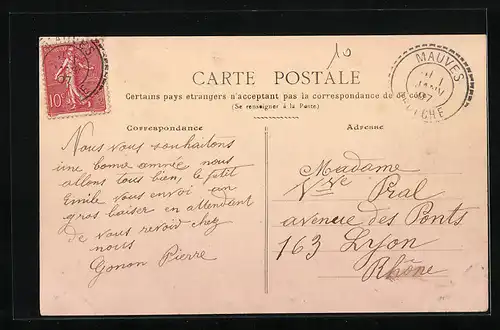 10
CARTE POSTALE
Certains pays etrangers n'acceptent pas la correspondance de ce côté
(Se renseigner à la Poste)
Correspondance
Adresse
MAUVES
JANV
07
ARDÈCHE
10
Nous vous souhaitons
une bonne année nous
allons tous bien, le petit
Emile vous envoi un
gros baiser en attendant
de vous revoir chez
nous
Gonon Pierre
Madame
Vve Pral
avenue des Ponts
163 Lyon
Rhône